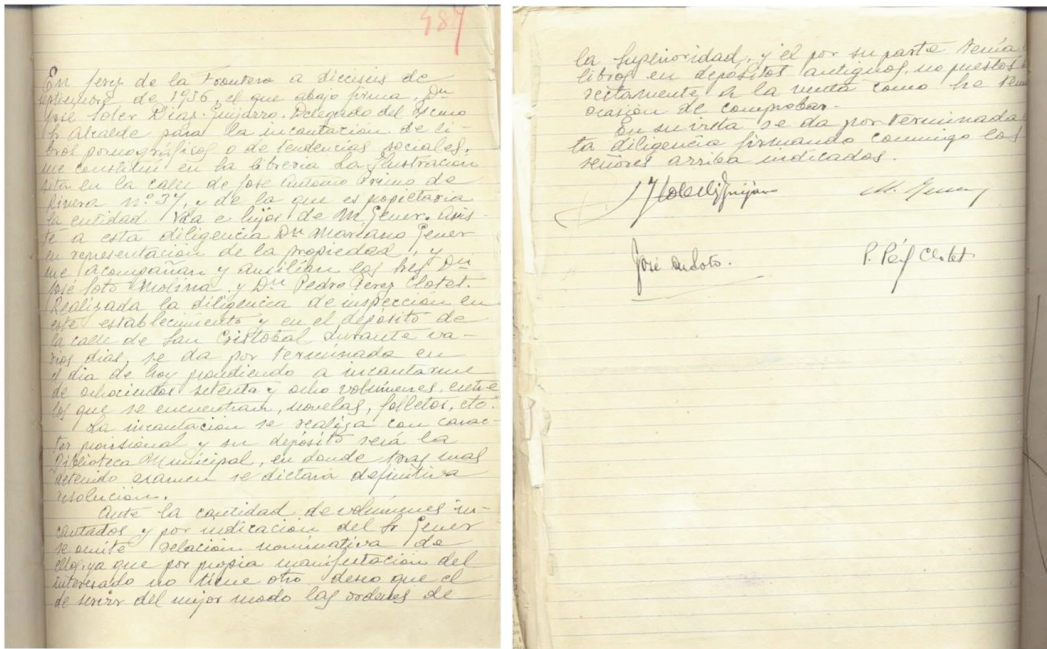 487
En Jerez de la Frontera a dieciseis de
septiembre de 1936, el que abajo firma, Dn
José Soler Díaz-Guijarro, Delegado del Excmo
Sr Alcalde para la incautación de li-
bros pornográficos o de tendencias sociales,
me constituí en la librería La Ilustración
sita en la calle de José Antonio Primo de
Rivera nº 37, y de la que es propietaria
la entidad Vda e hijos de M. Gener. Asis-
te a esta diligencia Dn Mariano Gener
en representación de la propiedad, y
me acompañan y auxilian los Sres Dn
José Soto Molina y Dn Pedro Pérez Clotet.
Realizada la diligencia de inspección en
este establecimiento y en el depósito de
la calle de San Cristobal durante va-
rios días, se da por terminada en
el día de hoy procediendo a incautarme
de ochocientos setenta y ocho volúmenes, entre
los que se encuentran, novelas, folletos, etc.
La incautación se realiza con carac-
ter provisional y su depósito será la
Biblioteca Municipal, en donde tras mas
detenido examen se dictará definitiva
resolución.
Ante la cantidad de volúmenes in-
cautados y por indicación del Sr Gener
se omite relación nominativa de
ellos, ya que por propia manifestación del
interesado no tiene otro deseo que el
de servir del mejor modo las ordenes de
la Superioridad, y él por su parte tenía
libros en depósitos antiguos, no puestos
rectamente a la venta como he tenido
ocasión de comprobar.
En su vista se da por terminada
ta diligencia firmando conmigo los
señores arriba indicados.
José de Soto.
P. Pérez Clotet